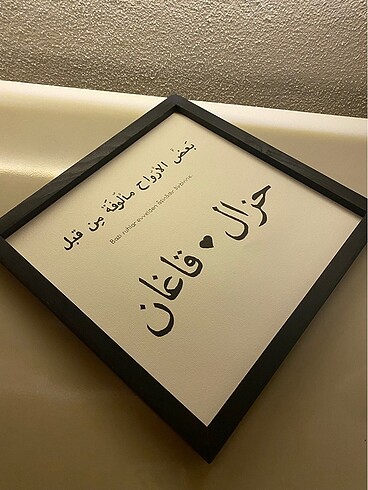 بَعضُ الأرْوَاحِ مَألُوفَة مِن قَبل
Bazı ruhlar evvelden
حزال ♥ قاغان